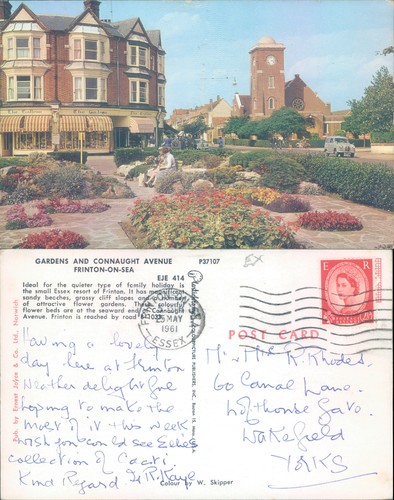 GARDENS AND CONNAUGHT AVENUE
FRINTON-ON-SEA
P37107
EX
EJE 414
Ideal for the quieter type of family holiday is
the small Essex resort of Frinton. It has magnificent
sandy beaches, grassy cliff slopes and a number
of attractive flower gardens. These colourful
flower beds are at the seaward end of Connaught
Avenue. Frinton is reached by road
Pub. by Ernest Joyce & Co. Ltd., Harwich
MAY
1961
ESSEX
E R
POST CARD
Having a lovely
day here at Frinton
Weather delightful
hoping to make the
most of it this week
wish you could see
collection of Cacti
Kind Regard R. Kaye
Mr & Mrs R. Rhodes
60 Canal Lane
Lofthouse Gate
Wakefield
YORKS
Colour by W. Skipper